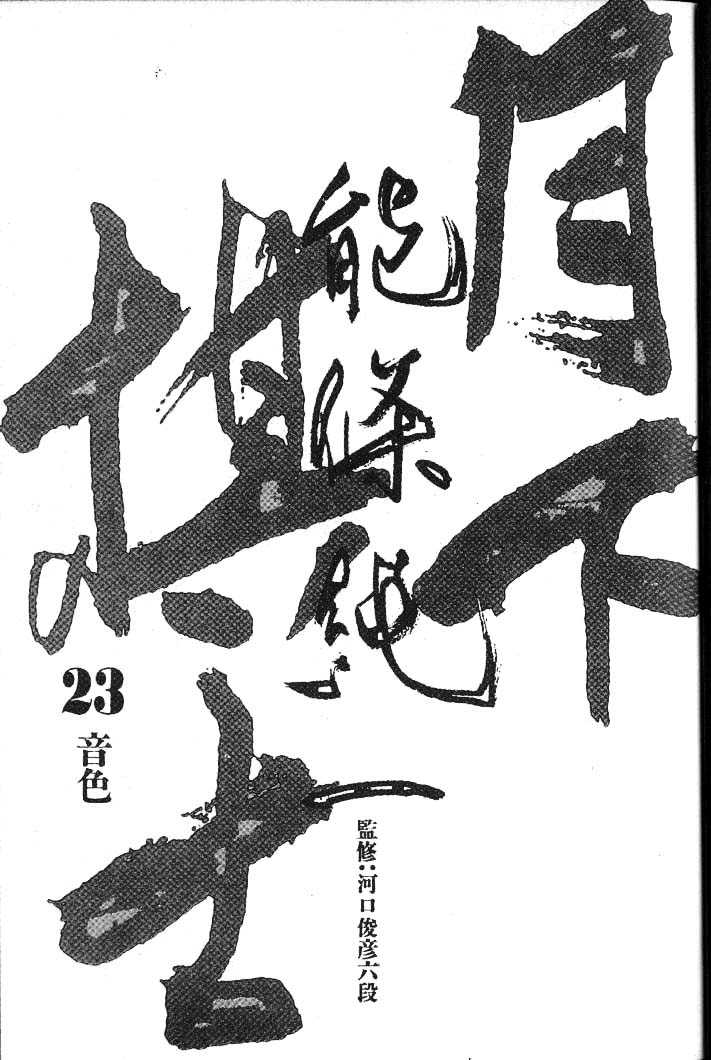 月下
棋士
能條純一
23
音色
監修:河口俊彦六段